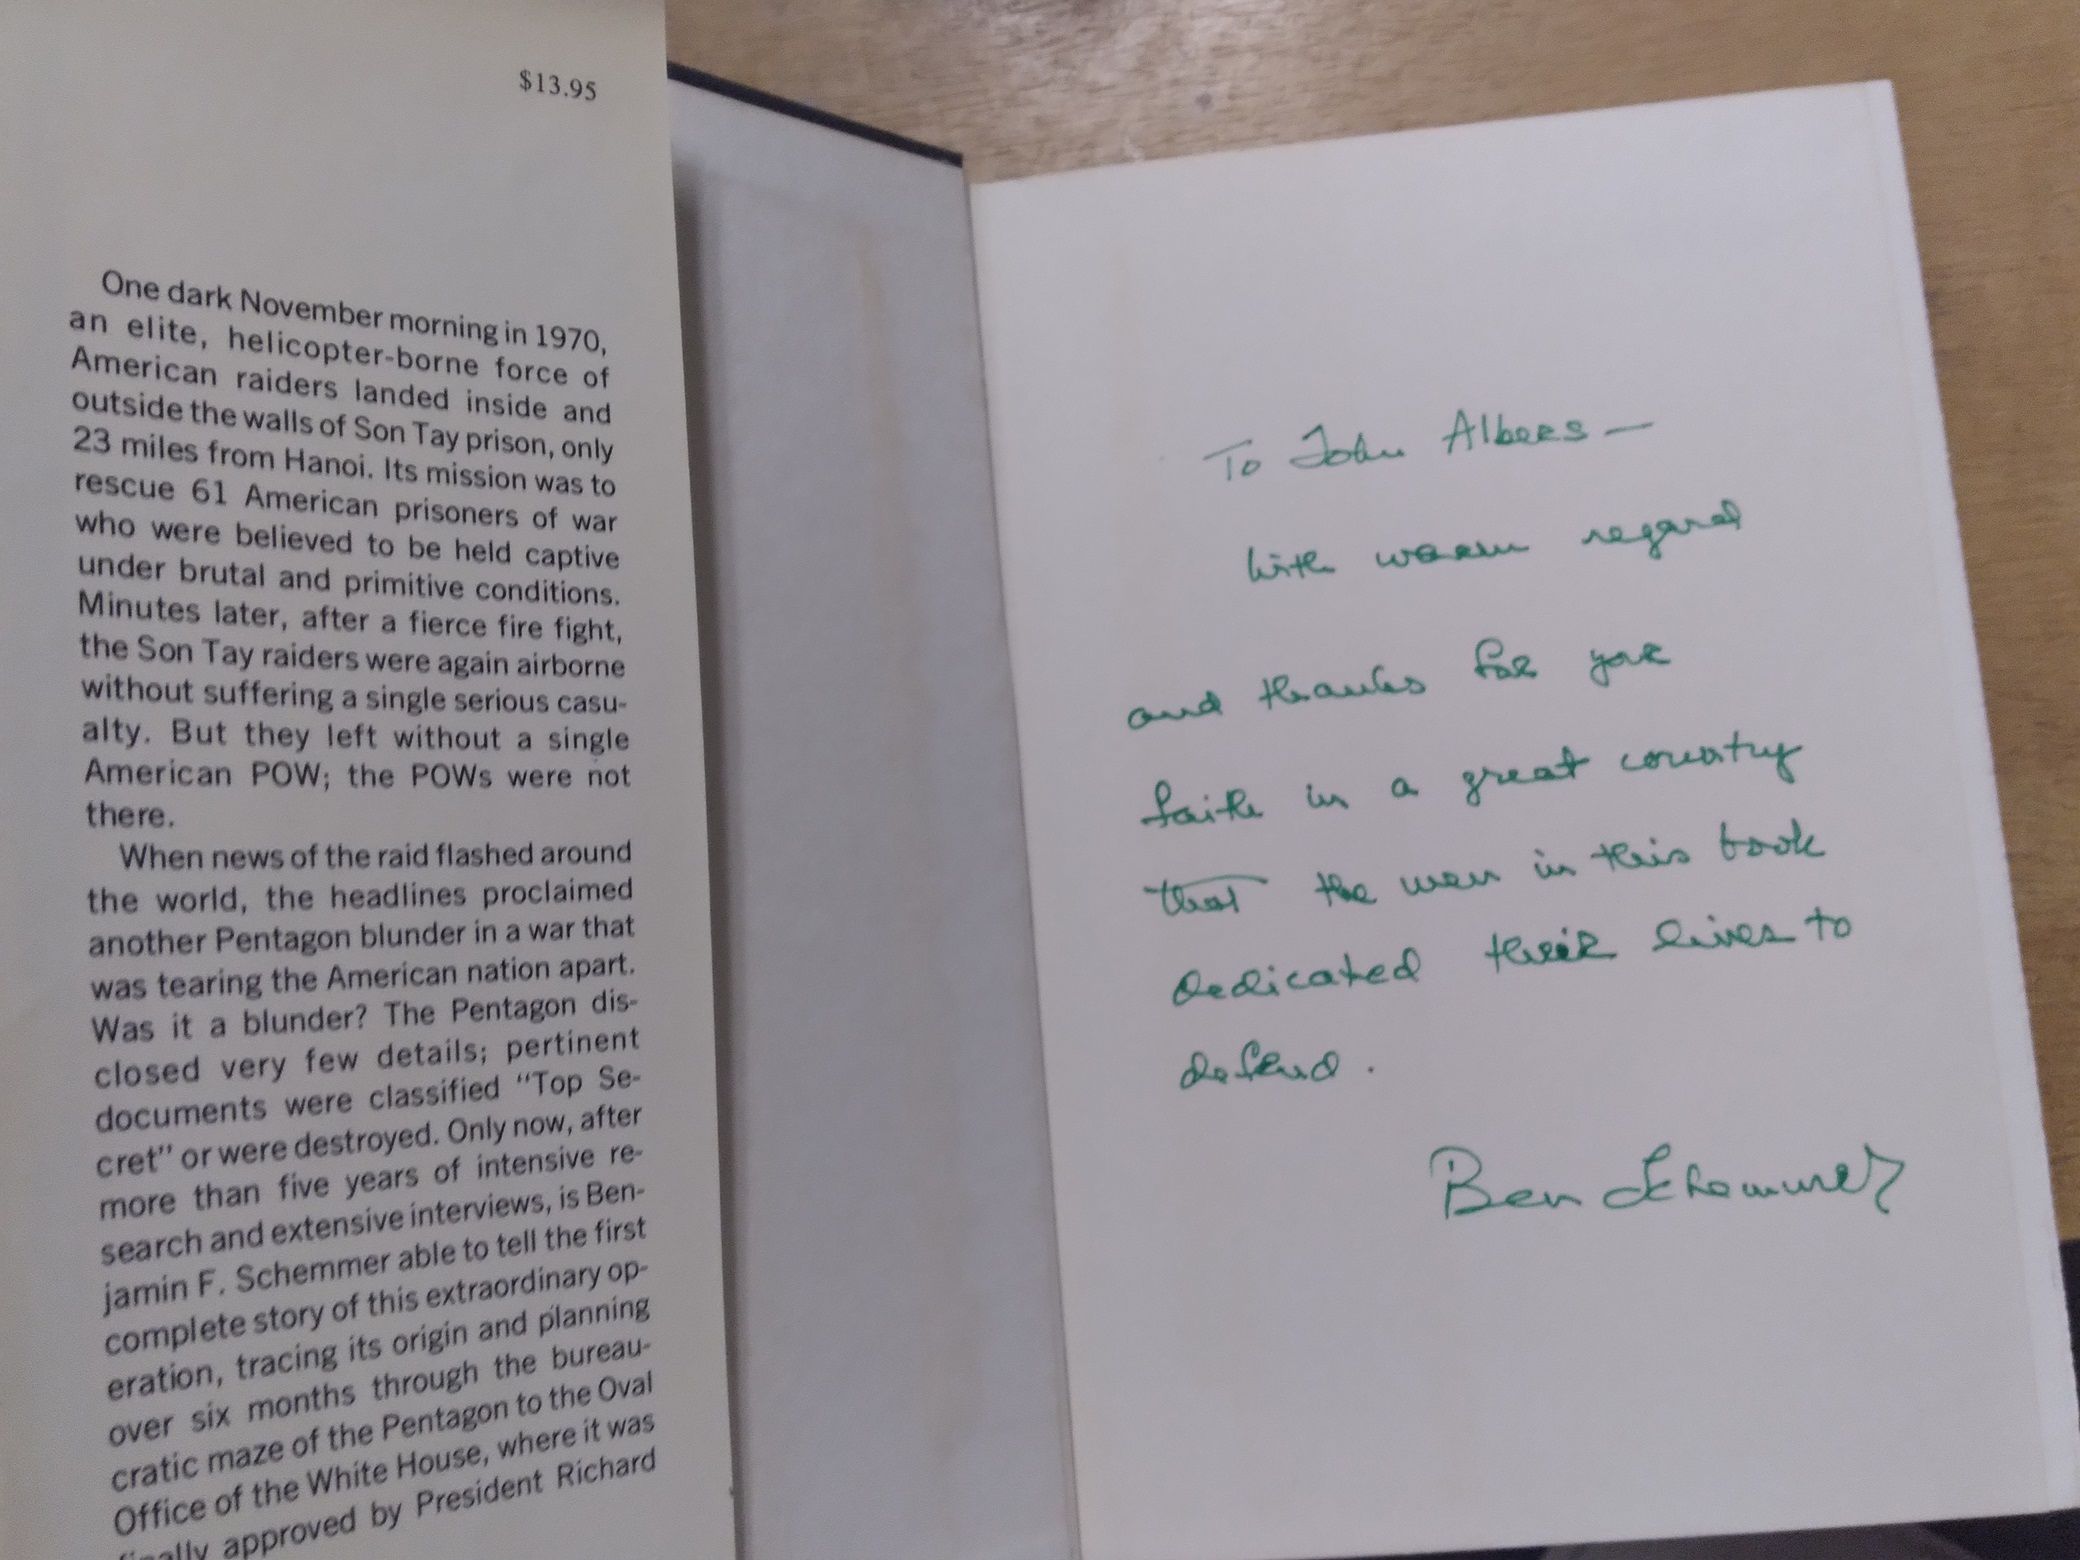 $13.95
One dark November morning in 1970,
an elite, helicopter-borne force of
American raiders landed inside and
outside the walls of Son Tay prison, only
23 miles from Hanoi. Its mission was to
rescue 61 American prisoners of war
who were believed to be held captive
under brutal and primitive conditions.
Minutes later, after a fierce fire fight,
the Son Tay raiders were again airborne
without suffering a single serious casu-
alty. But they left without a single
American POW; the POWs were not
there.
When news of the raid flashed around
the world, the headlines proclaimed
another Pentagon blunder in a war that
was tearing the American nation apart.
Was it a blunder? The Pentagon dis-
closed very few details; pertinent
documents were classified "Top Se-
cret" or were destroyed. Only now, after
more than five years of intensive re-
search and extensive interviews, is Ben-
jamin F. Schemmer able to tell the first
complete story of this extraordinary op-
eration, tracing its origin and planning
over six months through the bureau-
cratic maze of the Pentagon to the Oval
Office of the White House, where it was
finally approved by President Richard
To John Albers —
with warm regard
and thanks for your
faith in a great country
that the men in this book
dedicated their lives to
defend.
Ben Schemmer